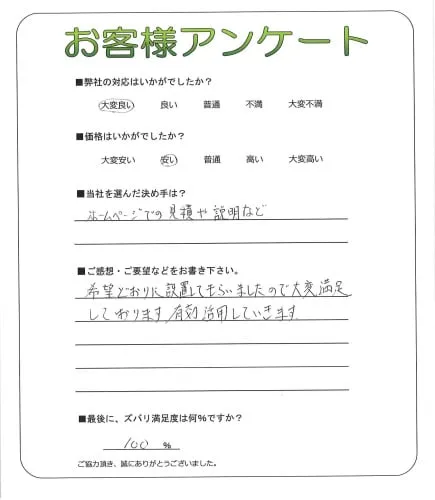 お客様アンケート
■弊社の対応はいかがでしたか?
大変良い 良い 普通 不満 大変不満
■価格はいかがでしたか?
大変安い 安い 普通 高い 大変高い
■当社を選んだ決め手は?
ホームページでの見積や説明など
■ご感想・ご要望などをお書き下さい。
希望どおりに設置してもらいましたので大変満足
しております。有効活用していきます。
■最後に、ズバリ満足度は何%ですか?
100 %
ご協力頂き、誠にありがとうございました。